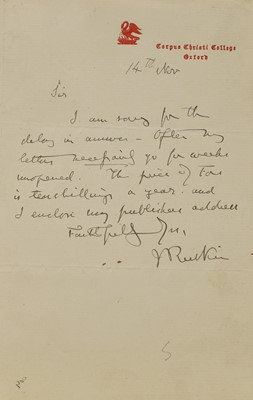 Corpus Christi College
Oxford
14th Nov
Sir
I am sorry for the
delay in answer – Often my
letters necessarily go for weeks
unopened. The price of Fors
is ten shillings a year. and
I enclose my publishers address
Faithfully Yrs,
J Ruskin